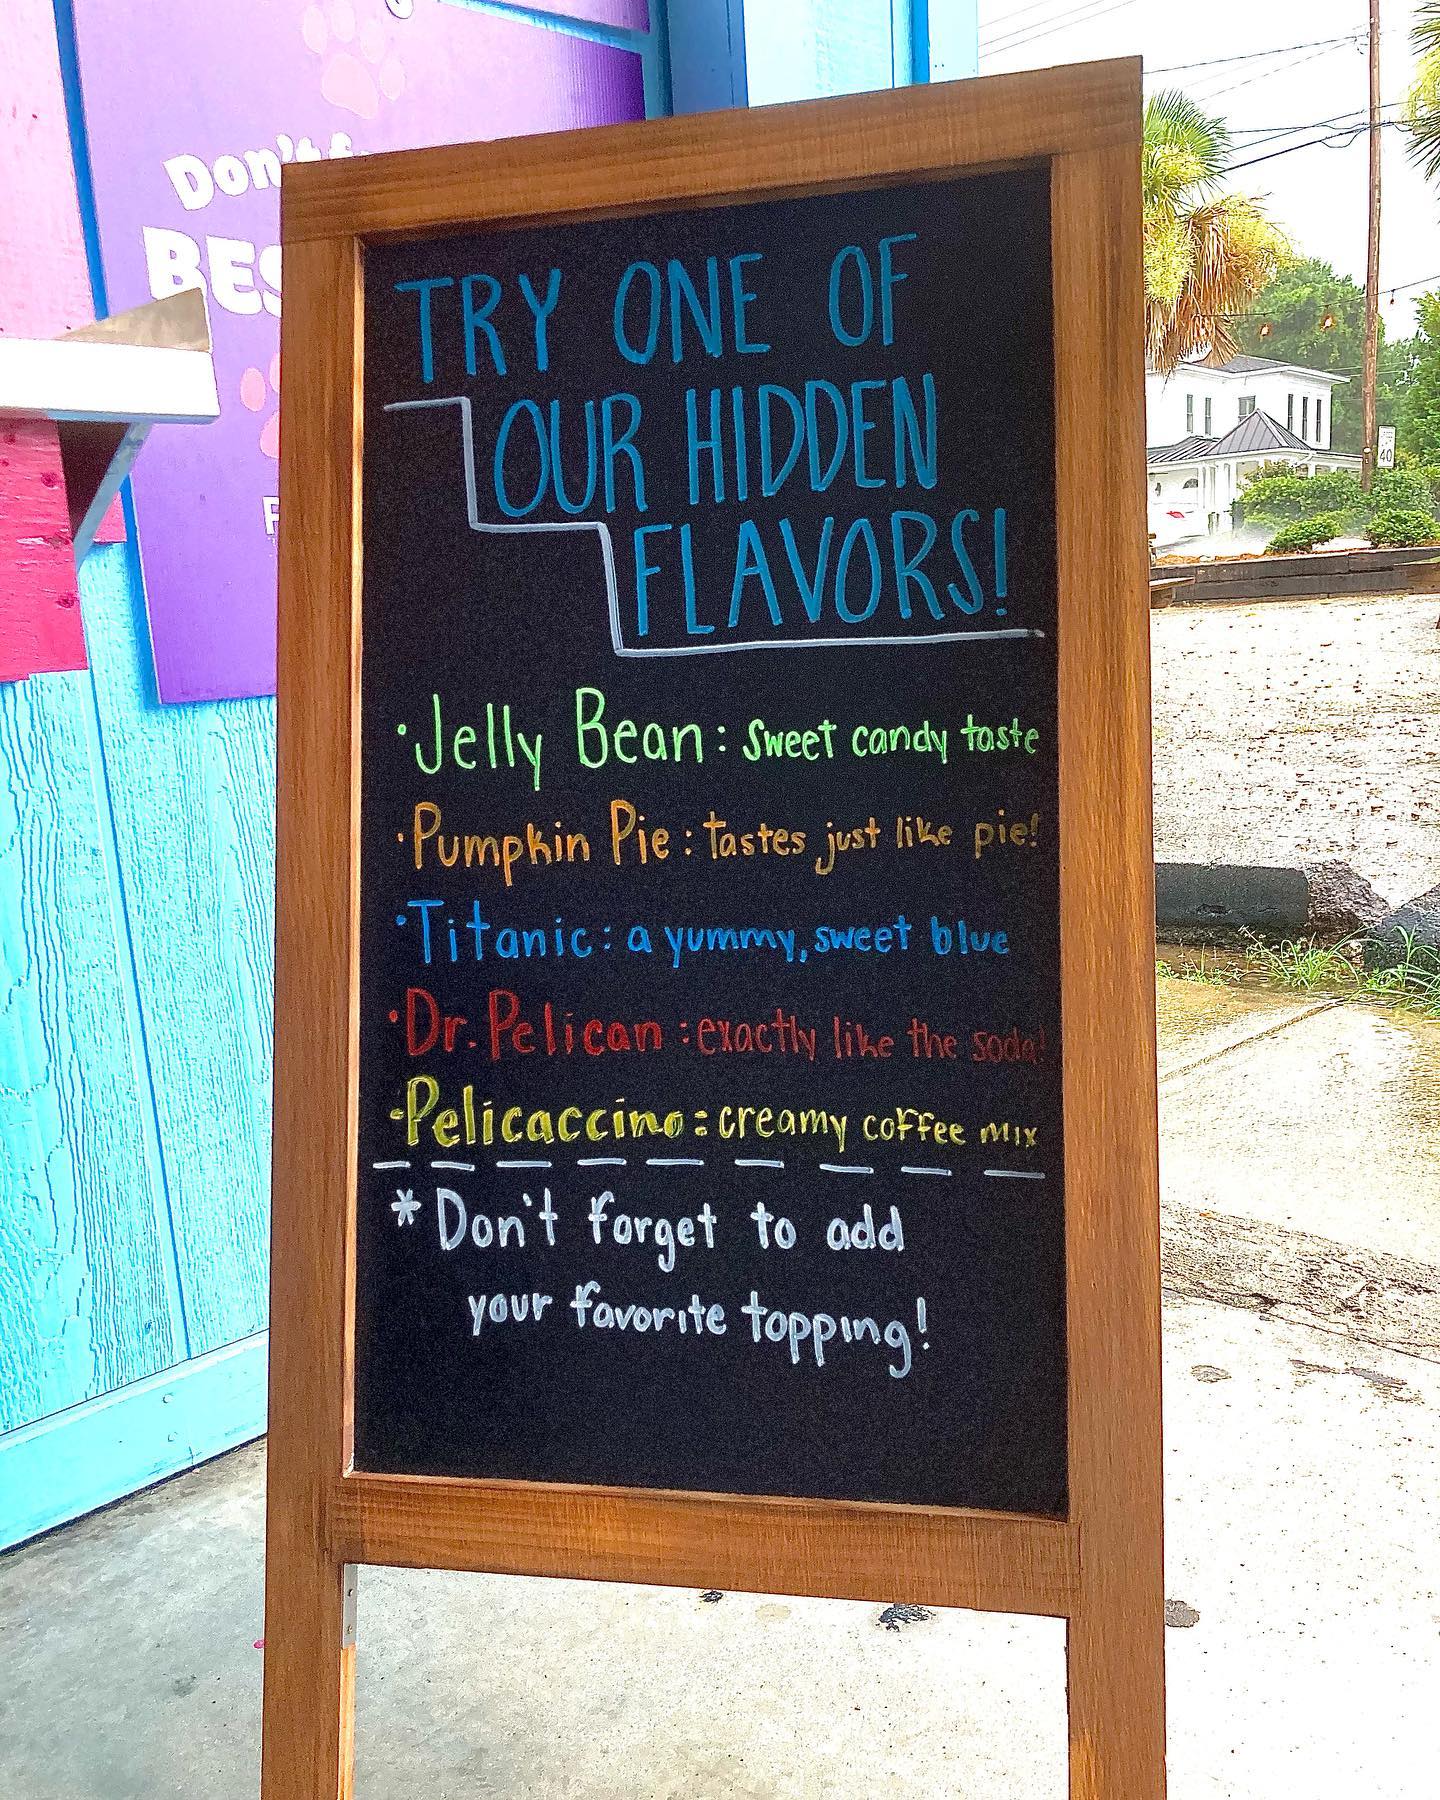 Don't
TRY ONE OF
OUR HIDDEN
FLAVORS!
· Jelly Bean: sweet candy taste
· Pumpkin Pie: tastes just like pie!
· Titanic: a yummy, sweet blue
· Dr. Pelican: exactly like the soda!
· Pelicaccino: creamy coffee mix
* Don't forget to add
your favorite topping!
40